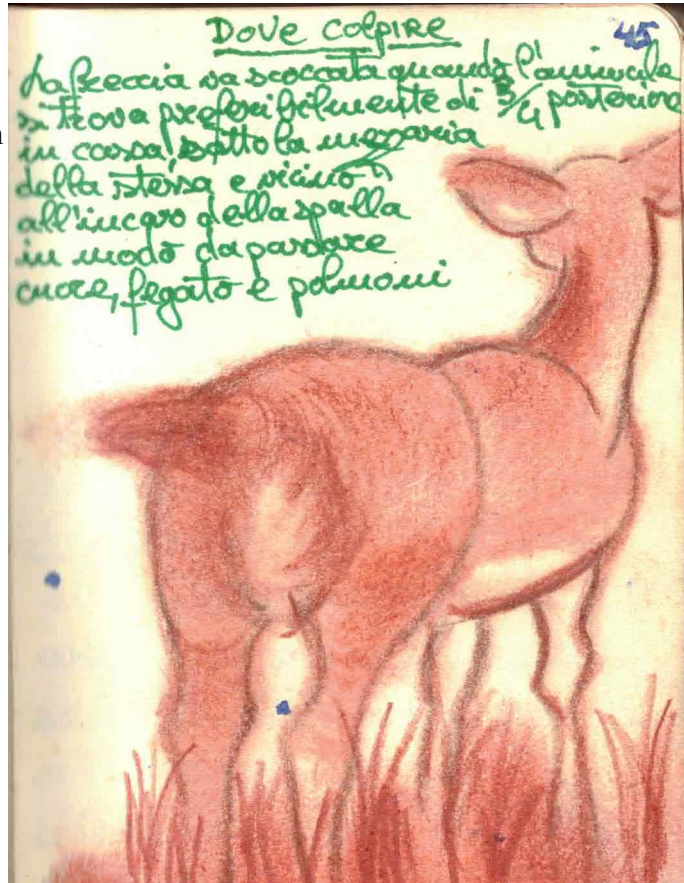 DOVE COLPIRE
45
La freccia va scoccata quando l'animale
si trova preferibilmente di 3/4 posteriore
in cassa, sotto la mezzaria
della stessa e vicino
all'incavo della spalla
in modo da passare
cuore, fegato e polmoni